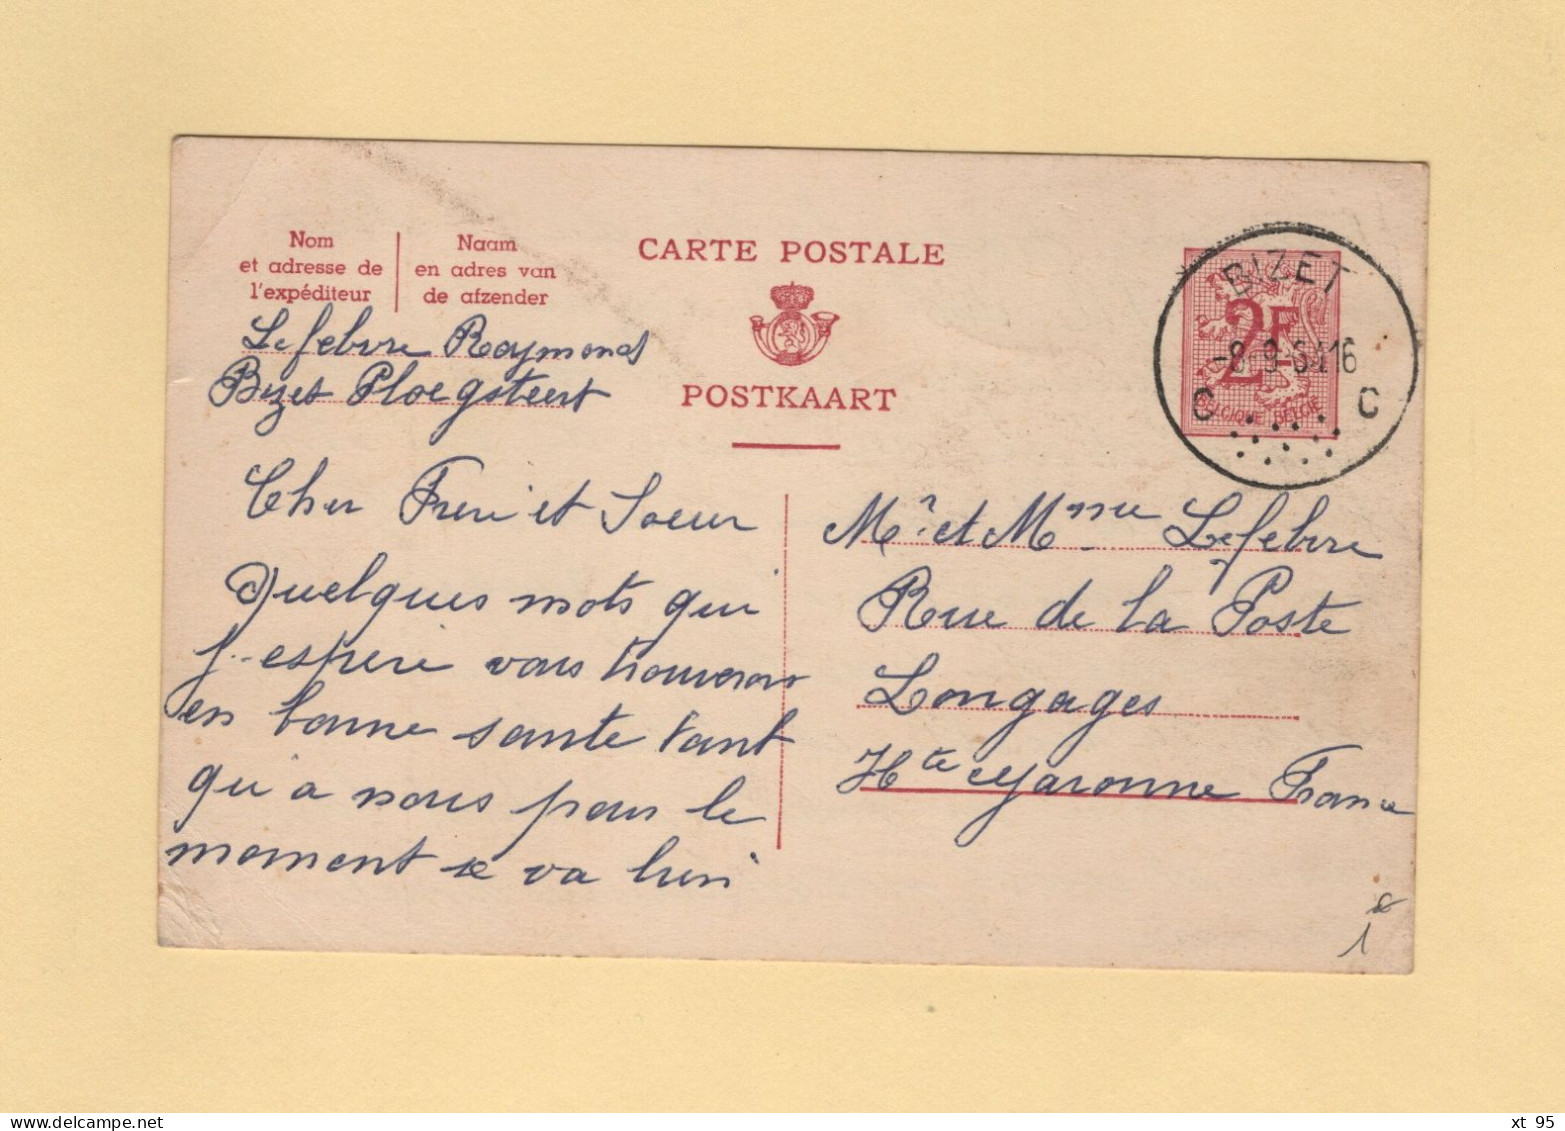 Nom
et adresse de
l'expéditeur
Naam
en adres van
de afzender
CARTE POSTALE
POSTKAART
BIZET
2F
-8-9-6416
C C
BELGIQUE BELGIE
Lefebvre Raymond
Bizet Ploegsteert
Cher Frere et Soeur
Quelques mots qui
j-espere vous trouveron
en bonne sante tant
qu'a nous pour le
moment se va bien
Mr. et Mme Lefebvre
Rue de la Poste
Longages
Hte Garonne France
1
www.delcampe.net
xt_95